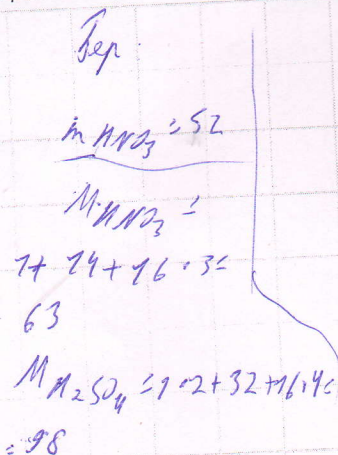 Бер.
m HNO3 = 52
M HNO3 =
1+ 14+16·3=
63
M H2SO4 = 1·2+32+16·4=
= 98